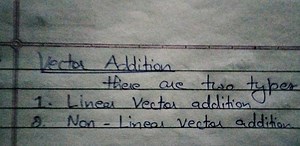 Vector Addition
there are two types
1. Linear Vector addition
2. Non - Linear Vector addition